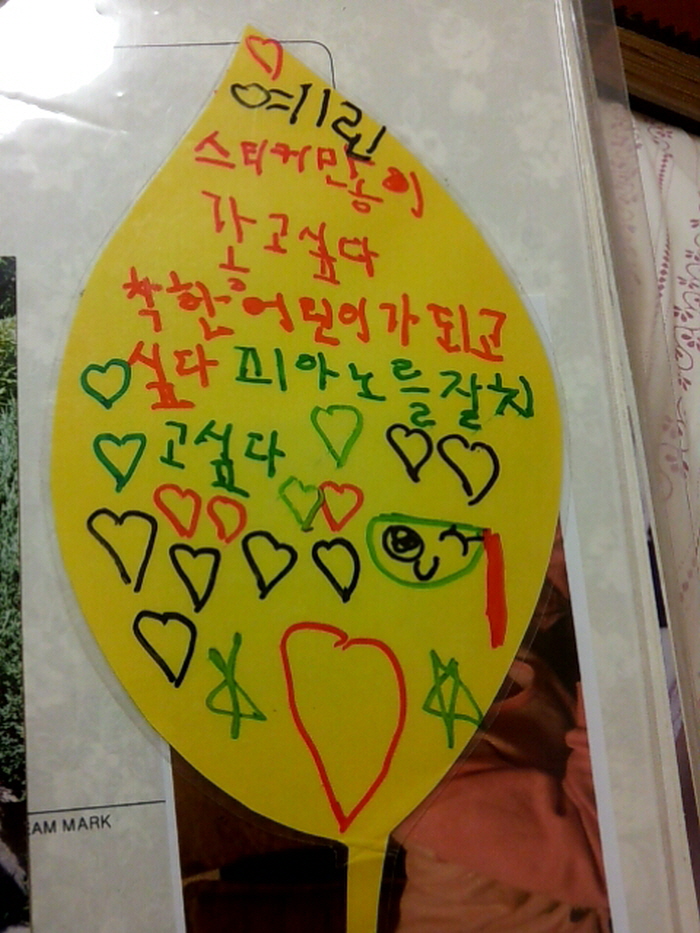 예린
스티커만이
갛고싶다
착한어린이가되고
싶다 피아노를잘치
고싶다
EAM MARK